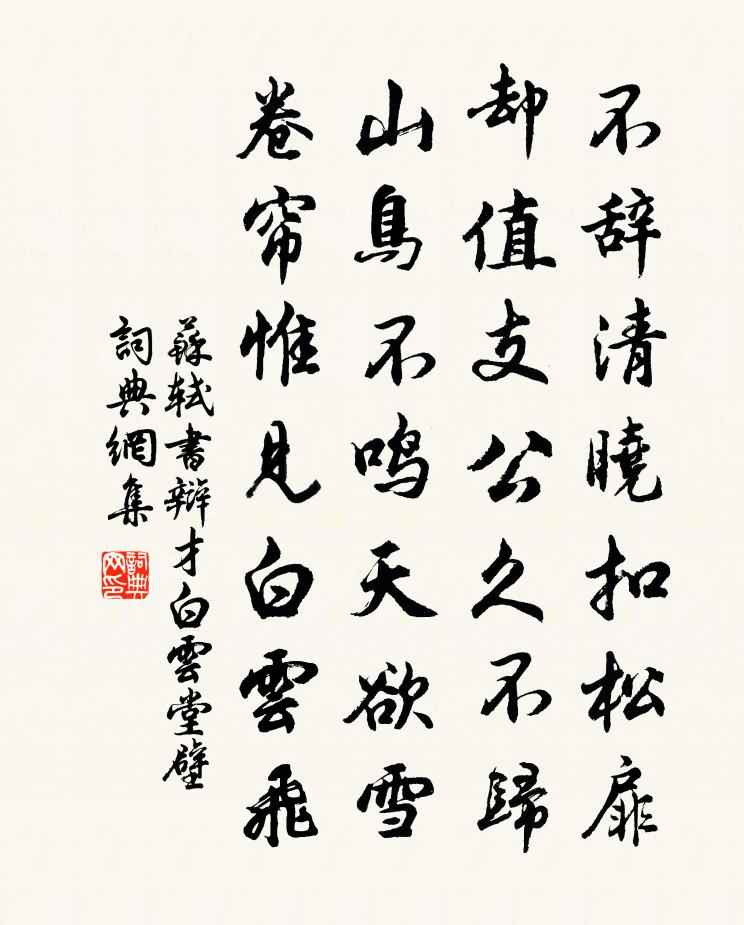 不辞清曉扣松扉
却值支公久不歸
山鳥不鸣天欲雪
卷帘惟見白雲飛
蘇軾書辯才白雲堂壁
詞典網集
詞典网印